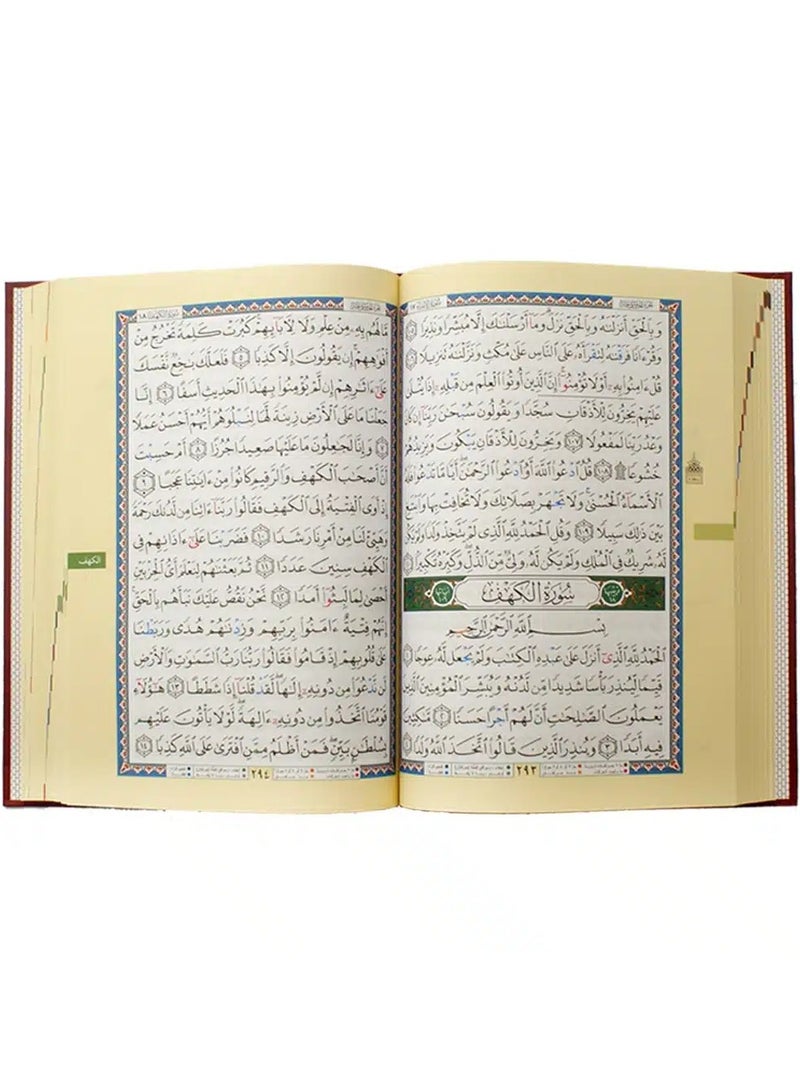 وَبِٱلْحَقِّ أَنزَلْنَٰهُ وَبِٱلْحَقِّ نَزَلَ ۗ وَمَآ أَرْسَلْنَٰكَ إِلَّا مُبَشِّرًا وَنَذِيرًا ١٠٥
وَقُرْءَانًا فَرَقْنَٰهُ لِتَقْرَأَهُۥ عَلَى ٱلنَّاسِ عَلَىٰ مُكْثٍ وَنَزَّلْنَٰهُ تَنزِيلًا ١٠٦
قُلْ ءَامِنُوا۟ بِهِۦٓ أَوْ لَا تُؤْمِنُوٓا۟ ۚ إِنَّ ٱلَّذِينَ أُوتُوا۟ ٱلْعِلْمَ مِن قَبْلِهِۦٓ إِذَا يُتْلَىٰ
عَلَيْهِمْ يَخِرُّونَ لِلْأَذْقَانِ سُجَّدًا ١٠٧ وَيَقُولُونَ سُبْحَٰنَ رَبِّنَآ إِن كَانَ
وَعْدُ رَبِّنَا لَمَفْعُولًا ١٠٨ وَيَخِرُّونَ لِلْأَذْقَانِ يَبْكُونَ وَيَزِيدُهُمْ
خُشُوعًا ۩ ١٠٩ قُلِ ٱدْعُوا۟ ٱللَّهَ أَوِ ٱدْعُوا۟ ٱلرَّحْمَٰنَ ۖ أَيًّا مَّا تَدْعُوا۟ فَلَهُ
ٱلْأَسْمَآءُ ٱلْحُسْنَىٰ ۚ وَلَا تَجْهَرْ بِصَلَاتِكَ وَلَا تُخَافِتْ بِهَا وَٱبْتَغِ
بَيْنَ ذَٰلِكَ سَبِيلًا ١١٠ وَقُلِ ٱلْحَمْدُ لِلَّهِ ٱلَّذِى لَمْ يَتَّخِذْ وَلَدًا وَلَمْ يَكُن
لَّهُۥ شَرِيكٌ فِى ٱلْمُلْكِ وَلَمْ يَكُن لَّهُۥ وَلِىٌّ مِّنَ ٱلذُّلِّ ۖ وَكَبِّرْهُ تَكْبِيرًۢا ١١١
سُورَةُ ٱلْكَهْفِ
بِسْمِ ٱللَّهِ ٱلرَّحْمَٰنِ ٱلرَّحِيمِ
ٱلْحَمْدُ لِلَّهِ ٱلَّذِىٓ أَنزَلَ عَلَىٰ عَبْدِهِ ٱلْكِتَٰبَ وَلَمْ يَجْعَل لَّهُۥ عِوَجَا ۜ ١
قَيِّمًا لِّيُنذِرَ بَأْسًا شَدِيدًا مِّن لَّدُنْهُ وَيُبَشِّرَ ٱلْمُؤْمِنِينَ ٱلَّذِينَ
يَعْمَلُونَ ٱلصَّٰلِحَٰتِ أَنَّ لَهُمْ أَجْرًا حَسَنًا ٢ مَّٰكِثِينَ
فِيهِ أَبَدًا ٣ وَيُنذِرَ ٱلَّذِينَ قَالُوا۟ ٱتَّخَذَ ٱللَّهُ وَلَدًا ٤
٢٩٣
سورة الكهف ١٨
مَّا لَهُم بِهِۦ مِنْ عِلْمٍ وَلَا لِءَابَآئِهِمْ ۚ كَبُرَتْ كَلِمَةً تَخْرُجُ مِنْ
أَفْوَٰهِهِمْ ۚ إِن يَقُولُونَ إِلَّا كَذِبًا ٥ فَلَعَلَّكَ بَٰخِعٌ نَّفْسَكَ
عَلَىٰٓ ءَاثَٰرِهِمْ إِن لَّمْ يُؤْمِنُوا۟ بِهَٰذَا ٱلْحَدِيثِ أَسَفًا ٦ إِنَّا
جَعَلْنَا مَا عَلَى ٱلْأَرْضِ زِينَةً لَّهَا لِنَبْلُوَهُمْ أَيُّهُمْ أَحْسَنُ عَمَلًا
٧ وَإِنَّا لَجَٰعِلُونَ مَا عَلَيْهَا صَعِيدًا جُرُزًا ٨ أَمْ حَسِبْتَ
أَنَّ أَصْحَٰبَ ٱلْكَهْفِ وَٱلرَّقِيمِ كَانُوا۟ مِنْ ءَايَٰتِنَا عَجَبًا ٩
إِذْ أَوَى ٱلْفِتْيَةُ إِلَى ٱلْكَهْفِ فَقَالُوا۟ رَبَّنَآ ءَاتِنَا مِن لَّدُنكَ رَحْمَةً
وَهَيِّئْ لَنَا مِنْ أَمْرِنَا رَشَدًا ١٠ فَضَرَبْنَا عَلَىٰٓ ءَاذَانِهِمْ فِى
ٱلْكَهْفِ سِنِينَ عَدَدًا ١١ ثُمَّ بَعَثْنَٰهُمْ لِنَعْلَمَ أَىُّ ٱلْحِزْبَيْنِ
أَحْصَىٰ لِمَا لَبِثُوٓا۟ أَمَدًا ١٢ نَّحْنُ نَقُصُّ عَلَيْكَ نَبَأَهُم بِٱلْحَقِّ ۚ
إِنَّهُمْ فِتْيَةٌ ءَامَنُوا۟ بِرَبِّهِمْ وَزِدْنَٰهُمْ هُدًى ١٣ وَرَبَطْنَا
عَلَىٰ قُلُوبِهِمْ إِذْ قَامُوا۟ فَقَالُوا۟ رَبُّنَا رَبُّ ٱلسَّمَٰوَٰتِ وَٱلْأَرْضِ
لَن نَّدْعُوَا۟ مِن دُونِهِۦٓ إِلَٰهًا ۖ لَّقَدْ قُلْنَآ إِذًا شَطَطًا ١٤ هَٰٓؤُلَآءِ
قَوْمُنَا ٱتَّخَذُوا۟ مِن دُونِهِۦٓ ءَالِهَةً ۖ لَّوْلَا يَأْتُونَ عَلَيْهِم
بِسُلْطَٰنٍۭ بَيِّنٍ ۖ فَمَنْ أَظْلَمُ مِمَّنِ ٱفْتَرَىٰ عَلَى ٱللَّهِ كَذِبًا ١٥
٢٩٤
الكهف